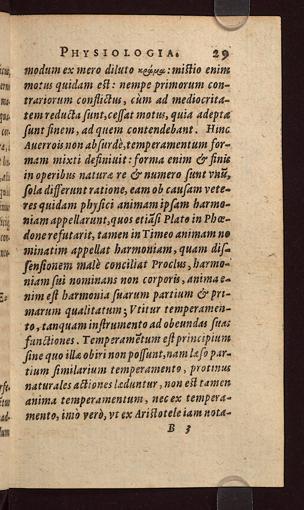 PHYSIOLOGIA. 29
modum ex mero diluto κρᾶμα: mistio enim
motus quidam est: nempe primorum con-
trariorum conflictus, cùm ad mediocrita-
tem reducta sunt, cessat motus, quia adepta
sunt finem, ad quem contendebant. Hinc
Averrois non absurdè, temperamentum for-
mam mixti definiuit: forma enim & finis
in operibus naturæ re & numero sunt vnũ,
sola differunt ratione, eam ob causam vete-
res quidam physici animam ipsam harmo-
niam appellarunt, quos etiãsi Plato in Phœ-
done refutarit, tamen in Timæo animam no
minatim appellat harmoniam, quam dis-
sensionem malè conciliat Proclus, harmo-
niam sui nominans non corporis, anima e-
nim est harmonia suarum partium & pri-
marum qualitatum; Vtitur temperamen-
to, tanquam instrumento ad obeundas suas
functiones. Temperamẽtum est principium
sine quo illæ obiri non possunt, nam læso par-
tium similarium temperamento, protinus
naturales actiones læduntur, non est tamen
anima temperamentum, nec ex tempera-
mento, imò verò, vt ex Aristotele iam nota-
B 3